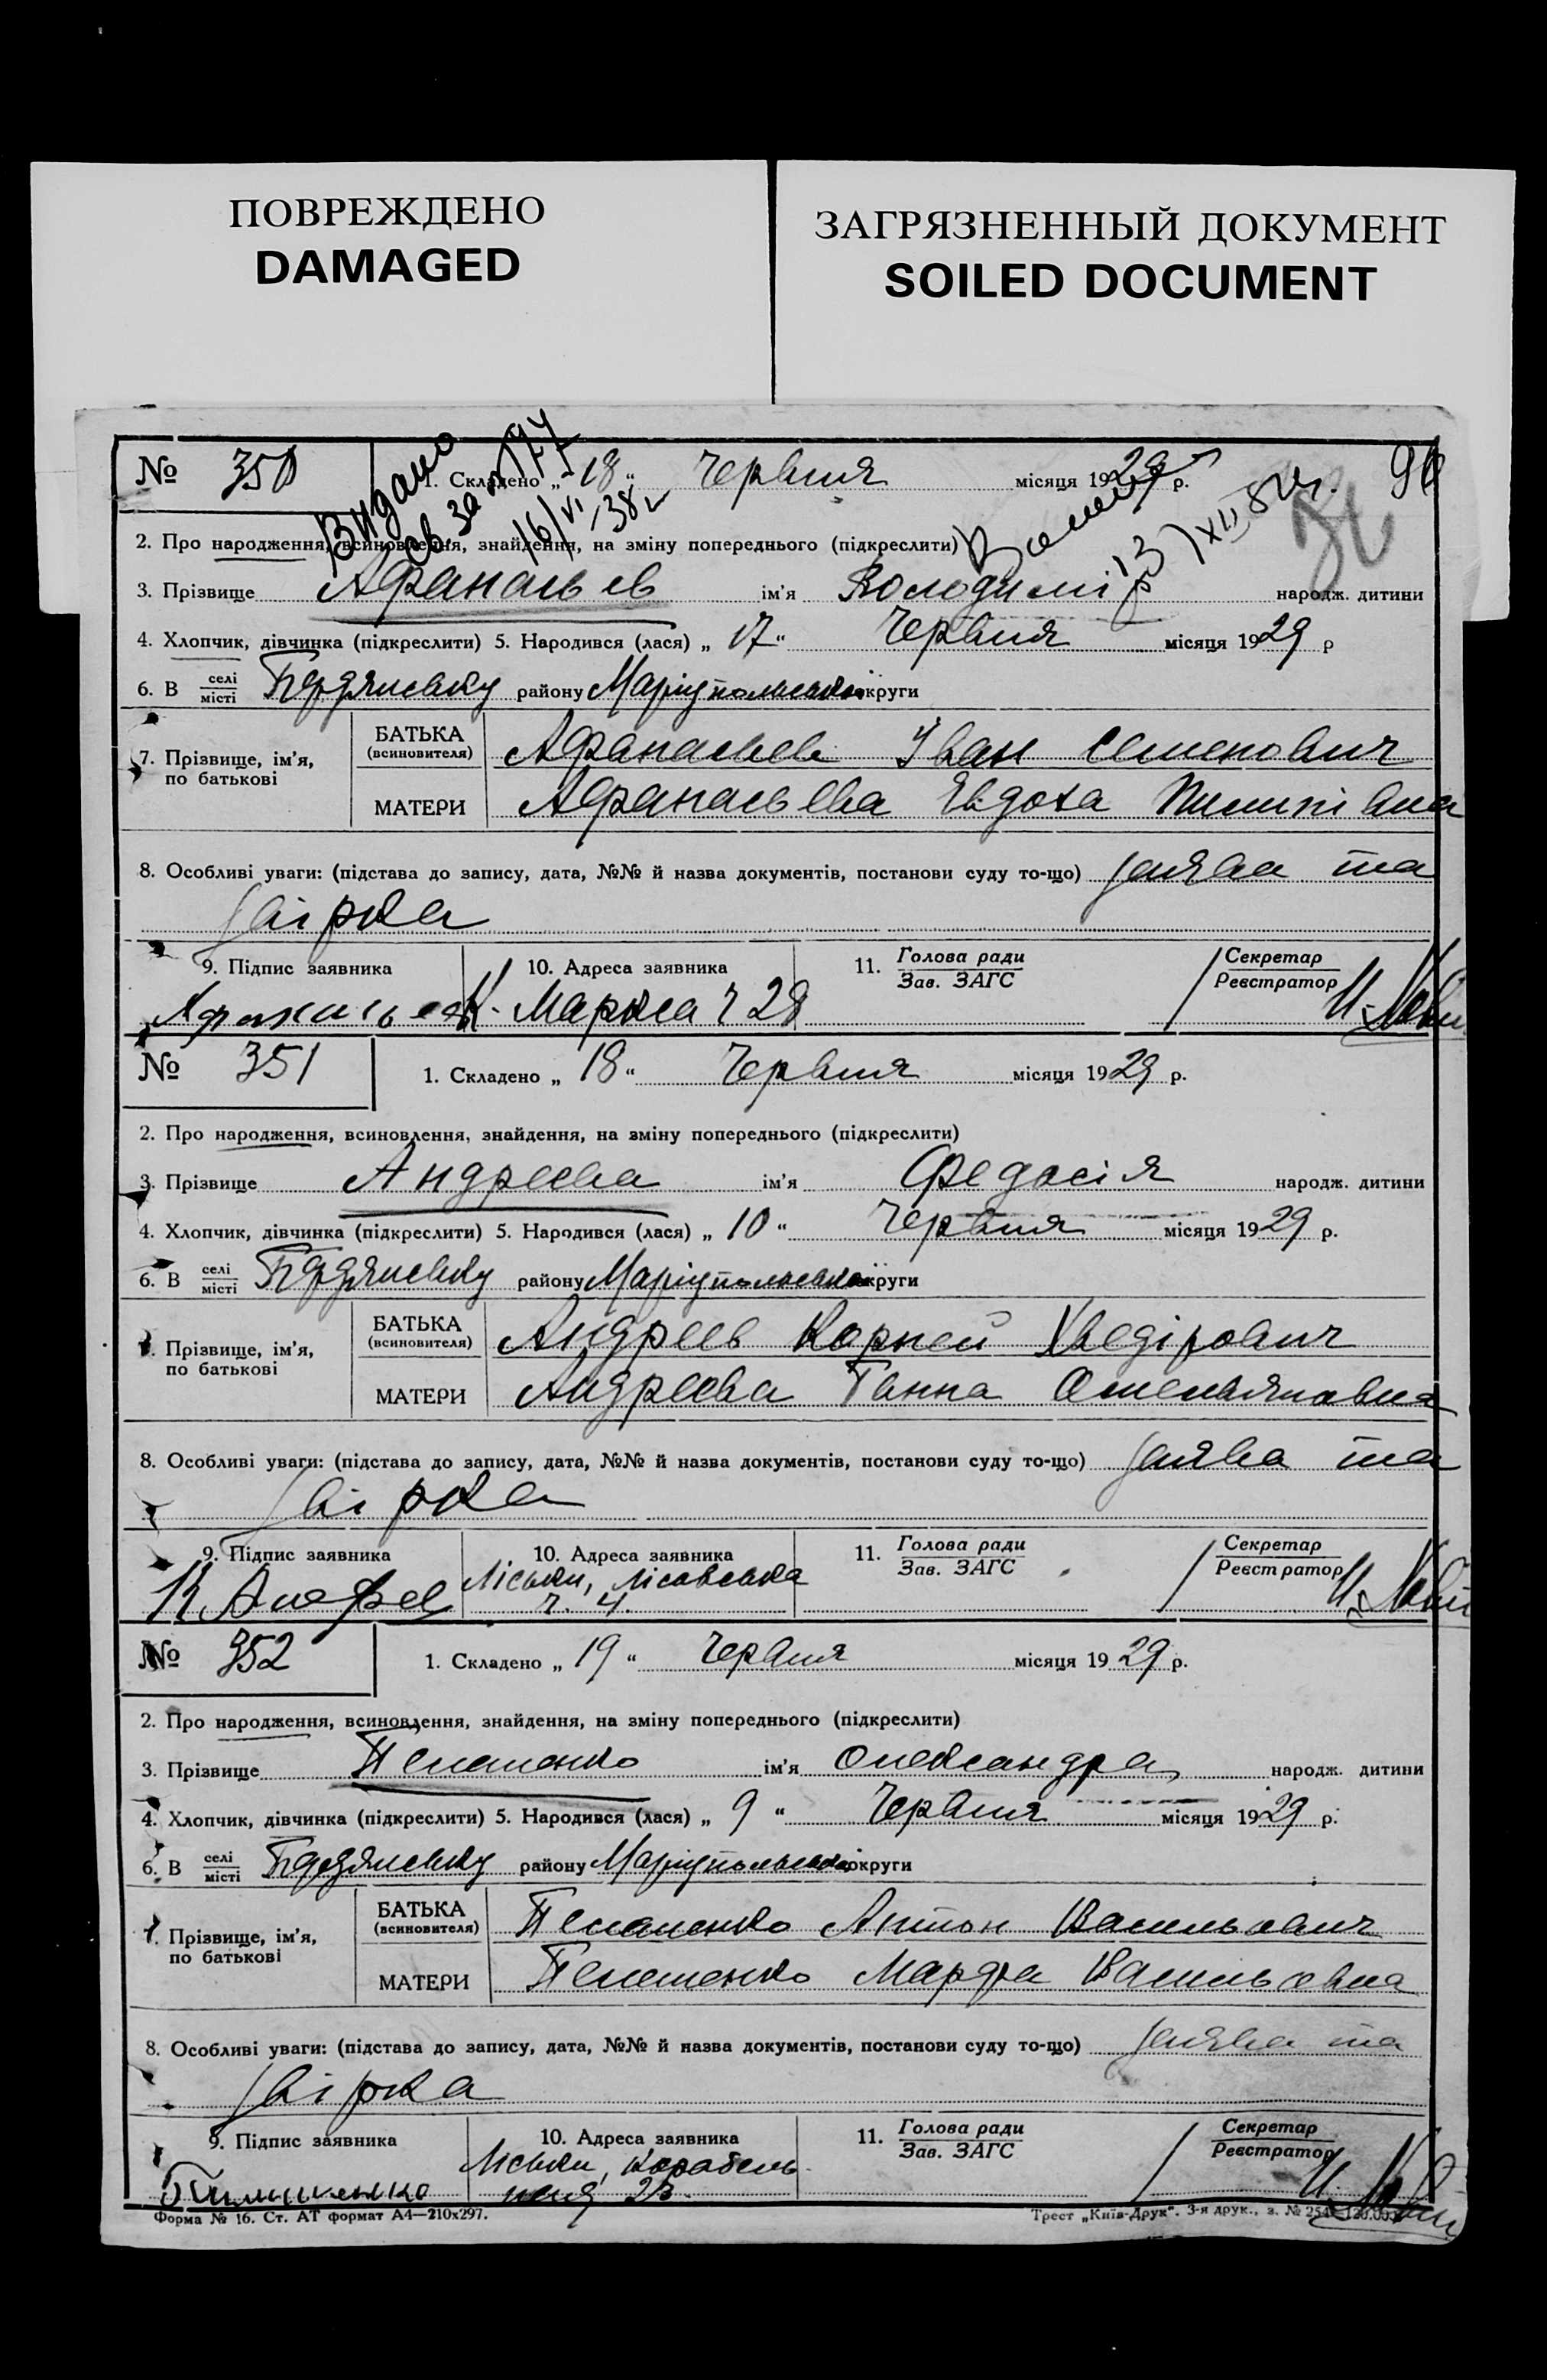 ПОВРЕЖДЕНО
DAMAGED
ЗАГРЯЗНЕННЫЙ ДОКУМЕНТ
SOILED DOCUMENT
Видано
св. за № 177
16/VI-38 г.
№ 350 1. Складено „18“ Червня місяця 1929 р.
2. Про народження, всиновлення, знайдення, на зміну попереднього (підкреслити)
3. Прізвище Афанасьєв ім'я Володимір народж. дитини
4. Хлопчик, дівчинка (підкреслити) 5. Народився (лася) „17“ Червня місяця 1929 р
6. В селі/місті Бердянську району Маріупольської округи
7. Прізвище, ім'я, по батькові
БАТЬКА (всиновителя) Афанасьев Іван Семенович
МАТЕРИ Афанасьева Евдоха
8. Особливі уваги: (підстава до запису, дата, №№ й назва документів, постанови суду то-що) заява та
звірка
9. Підпис заявника 10. Адреса заявника 11. Голова ради/Зав. ЗАГС Секретар/Реєстратор
Афанасьев К. Маркса ч 28
№ 351 1. Складено „18“ Червня місяця 1929 р.
2. Про народження, всиновлення, знайдення, на зміну попереднього (підкреслити)
3. Прізвище Андреева ім'я Федосія народж. дитини
4. Хлопчик, дівчинка (підкреслити) 5. Народився (лася) „10“ Червня місяця 1929 р.
6. В селі/місті Бердянську району Маріупольської округи
7. Прізвище, ім'я, по батькові
БАТЬКА (всиновителя) Андреев Корней Хведірович
МАТЕРИ Андреева Ганна Омельяновна
8. Особливі уваги: (підстава до запису, дата, №№ й назва документів, постанови суду то-що) заява та
звірка
9. Підпис заявника 10. Адреса заявника 11. Голова ради/Зав. ЗАГС Секретар/Реєстратор
К Андреев Ліськи, Лісовська
ч. 4.
№ 352 1. Складено „19“ Червня місяця 1929 р.
2. Про народження, всиновлення, знайдення, на зміну попереднього (підкреслити)
3. Прізвище ім'я Олександра народж. дитини
4. Хлопчик, дівчинка (підкреслити) 5. Народився (лася) „9“ Червня місяця 1929 р.
6. В селі/місті Бердянську району Маріупольської округи
7. Прізвище, ім'я, по батькові
БАТЬКА (всиновителя) Антон Васильович
МАТЕРИ Марфа Васильовна
8. Особливі уваги: (підстава до запису, дата, №№ й назва документів, постанови суду то-що) заява та
звірка
9. Підпис заявника 10. Адреса заявника 11. Голова ради/Зав. ЗАГС Секретар/Реєстратор
Ліськи, Корабель
23.
Форма № 16. Ст. АТ формат А4—210х297. Трест „Київ-Друк“. 3-я друк., з. №